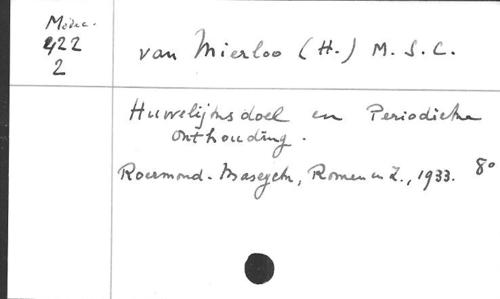 Medec.
422
2
van Mierloo (H.) M. S. C.
Huwelijksdoel en Periodieke
onthouding.
Roermond-Maseyck, Romen en Z., 1933. 8°